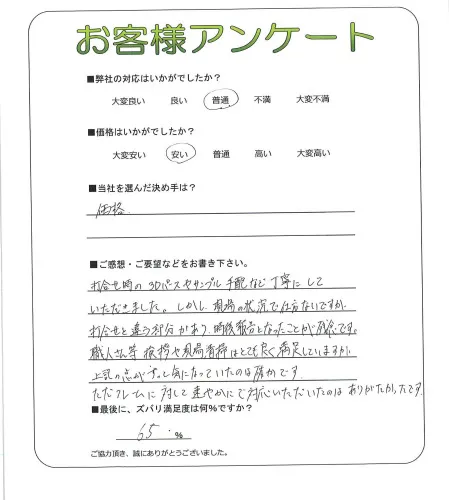 お客様アンケート
■弊社の対応はいかがでしたか?
大変良い 良い 普通 不満 大変不満
■価格はいかがでしたか?
大変安い 安い 普通 高い 大変高い
■当社を選んだ決め手は?
価格
■ご感想・ご要望などをお書き下さい。
打合せ時の3Dパースやサンプル手配など丁寧にして
いただきました。しかし、現場の状況で仕方ないですが、
打合せと違う部分があり、事後報告となったことが残念です。
職人さん等 挨拶や現場清掃はとても良く満足していますが、
上記の点がずっと気になっていたのは確かです。
ただクレームに対して速やかにご対応いただいたのはありがたかったです。
■最後に、ズバリ満足度は何%ですか?
65.%
ご協力頂き、誠にありがとうございました。